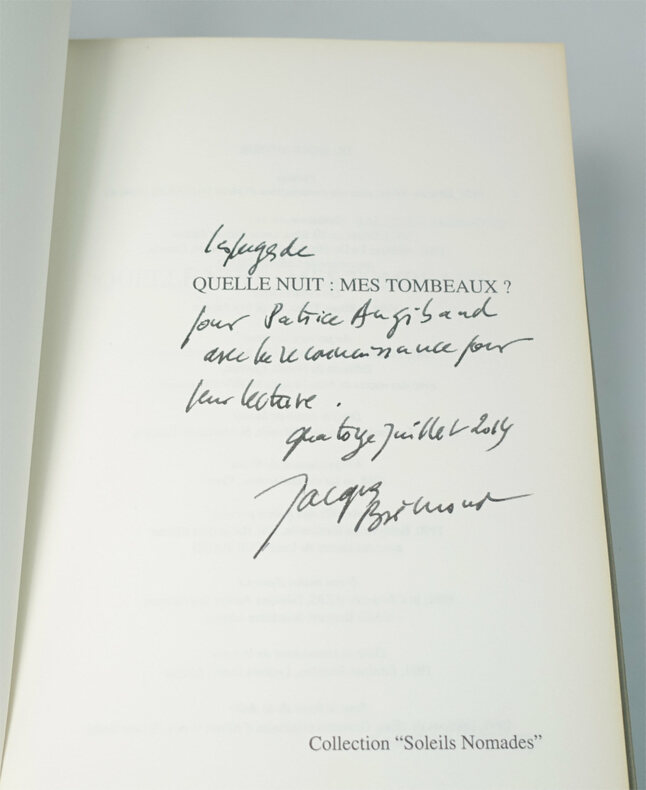 les pages de
QUELLE NUIT : MES TOMBEAUX ?
pour Patrice Angibaud
avec la reconnaissance pour
leur lecture .
quatorze juillet 2014
Jacques
Brémond
Collection “Soleils Nomades”